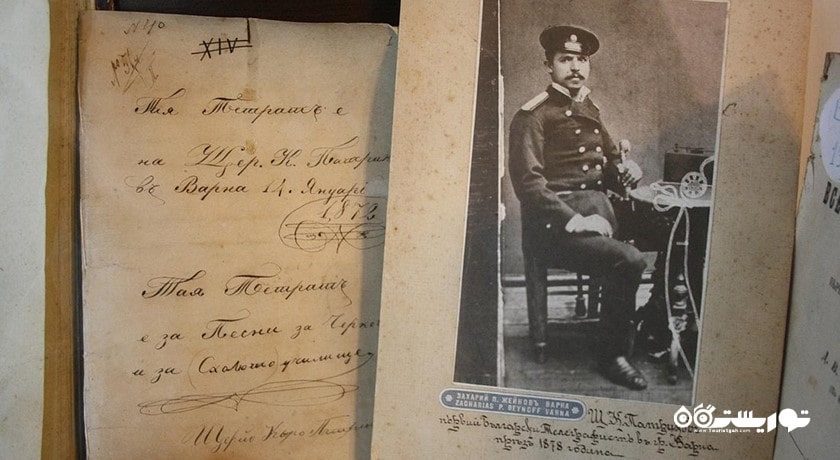 N 40
XIV
Тая Тетрать е
на Щер. К.
въ Варна 14. Януарі
1,872
Тая Тетрать
е за Песни за Черк
и за училище
ЗАХАРИЙ П. ЖЕЙНОВЪ ВАРНА
ZACHARIAS P. BEYNOFF VARNA
първий Български Телеграфистъ въ гр. Варна
през 1878 година.
توریستگاه
www.Touristgah.com